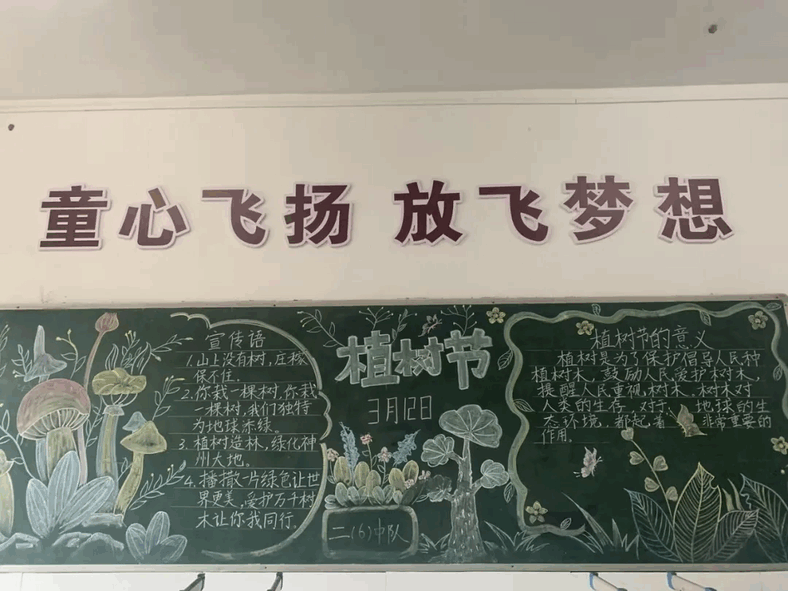 童心飞扬 放飞梦想
宣传语
1.山上没有树,庄稼
保不住。
2.你栽一棵树,你栽
一棵树,我们独特
为地球添绿。
3.植树造林,绿化神
州大地。
4.播撒一片绿色让世
界更美,爱护万千树
木让你我同行。
植树节
3月12日
二(6)中队
植树节的意义
植树是为了保护倡导人民种
植树木,鼓励人民爱护树木,
提醒人民重视树木.树木对
人类的生存,对于 地球的生
态环境,都起着 非常重要的
作用